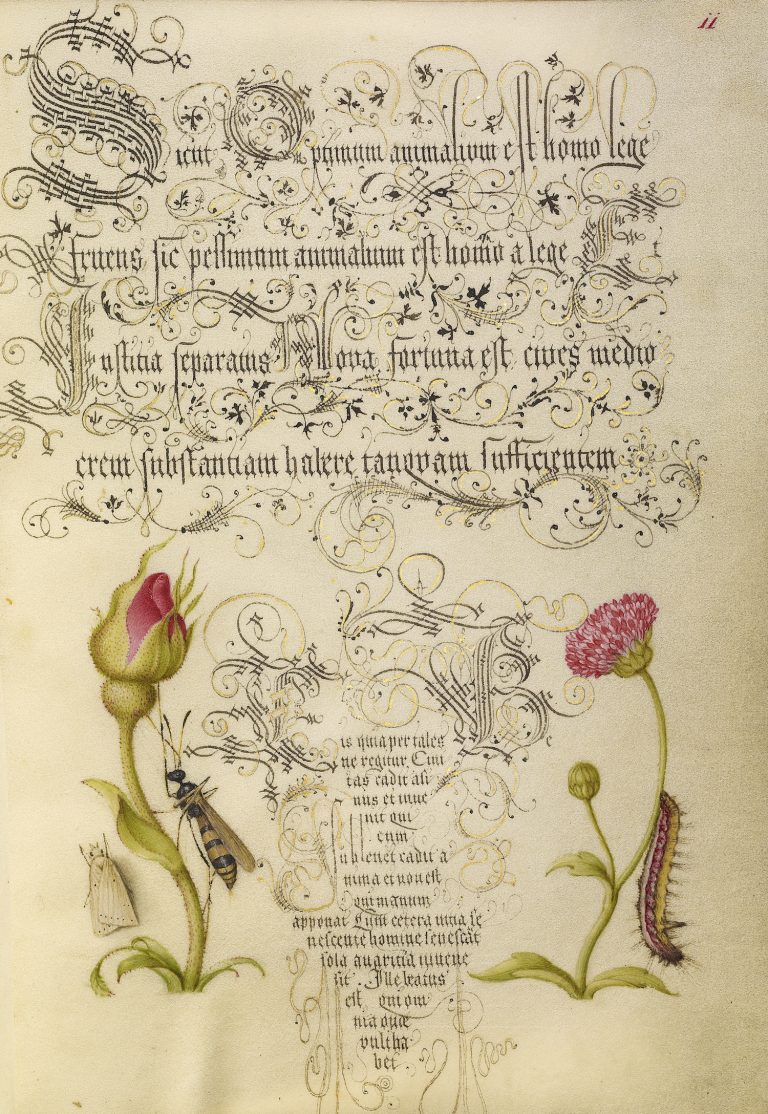 ii
Sicut Optimum animalium est homo lege
fruens sic pessimum animalium est homo a lege et
Iustitia separatus Nova fortuna est cives medio
crem substantiam habere tanqvam sufficientem
is quia per tales Be
ne regitur Civi
tas cadit asi
nus et inve
nit qui
eum
sublevet cadit a
nima et non est
qui manum
apponat Cum cetera vitia se
nescente homine senescāt
sola avaritia iuvene
sit. Ille beatus
est qui om
nia quæ
vult ha
bet.